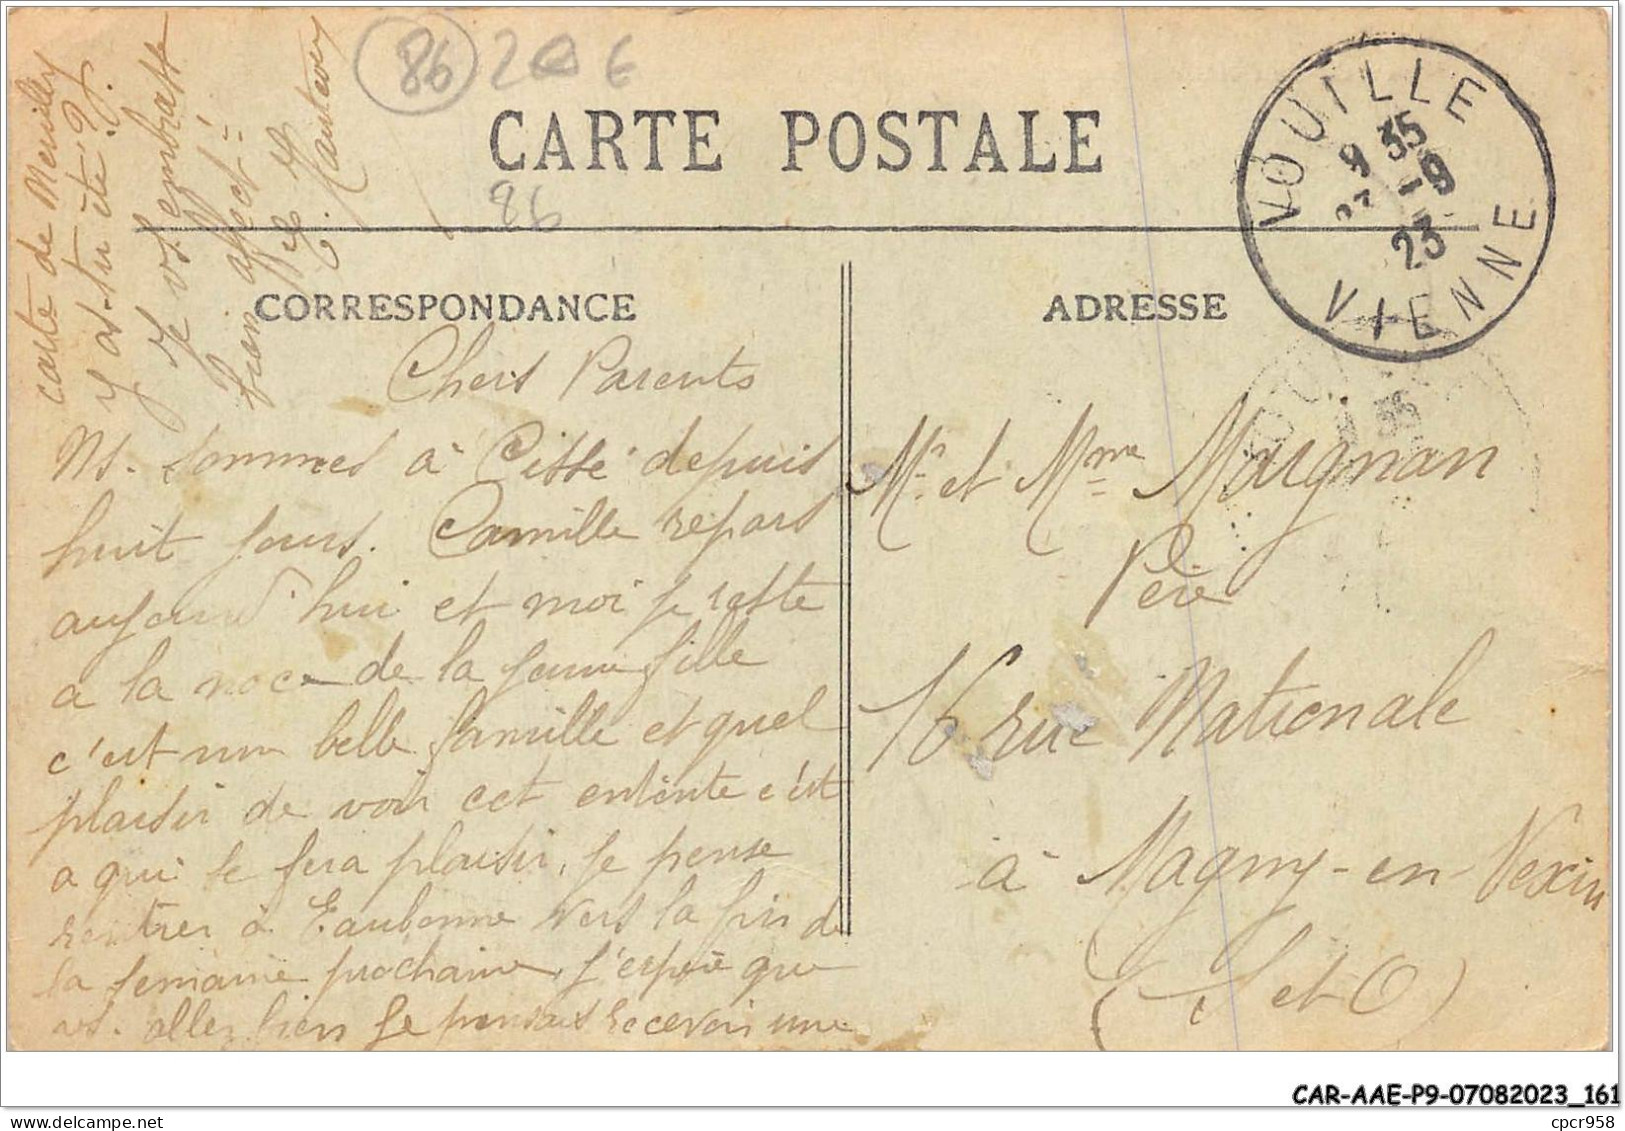 86 2 € 
CARTE POSTALE
86
VOUILLE
9 35
-9
23
VIENNE
CORRESPONDANCE
ADRESSE
Chers Parents
Ns. sommes à Cissé depuis
huit jours. Camille repars
aujourd'hui et moi je reste
a la noce de la jeune fille
c'est un belle famille et quel
plaisir de voir cet entente c'est
a qui se fera plaisir, je pense
rentrer à Eaubonne vers la fin de
la semaine prochaine, j'espère que
vs. allez bien je pensais recevoir une
carte de Menilles
y as-tu été ?
Je vs. embrasse
bien affect=
Mr et Mme Maignan
Père
16 rue Nationale
à Magny-en-Vexin
(S et O)
CAR-AAE-P9-07082023_161
cpcr958